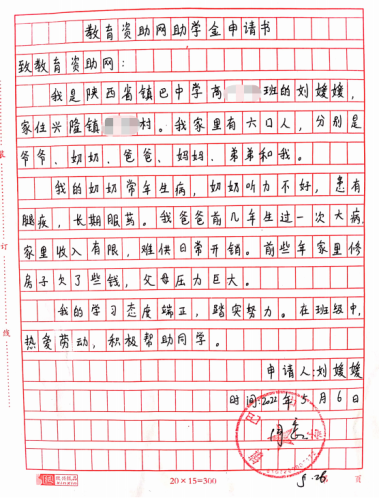 教育资助网助学金申请书
致教育资助网：
我是陕西省镇巴中学高班的刘媛媛，
家住兴隆镇村。我家里有六口人，分别是
爷爷、奶奶、爸爸、妈妈、弟弟和我。
我的奶奶常年生病，奶奶听力不好，患有
腿疾，长期服药。我爸爸前几年生过一次大病，
家里收入有限，难供日常开销。前些年家里修
房子欠了些钱，父母压力巨大。
我的学习态度端正，踏实努力。在班级中，
热爱劳动，积极帮助同学。
申请人：刘媛媛
时间：2022年5月6日
装
订
线
20×15=300
页